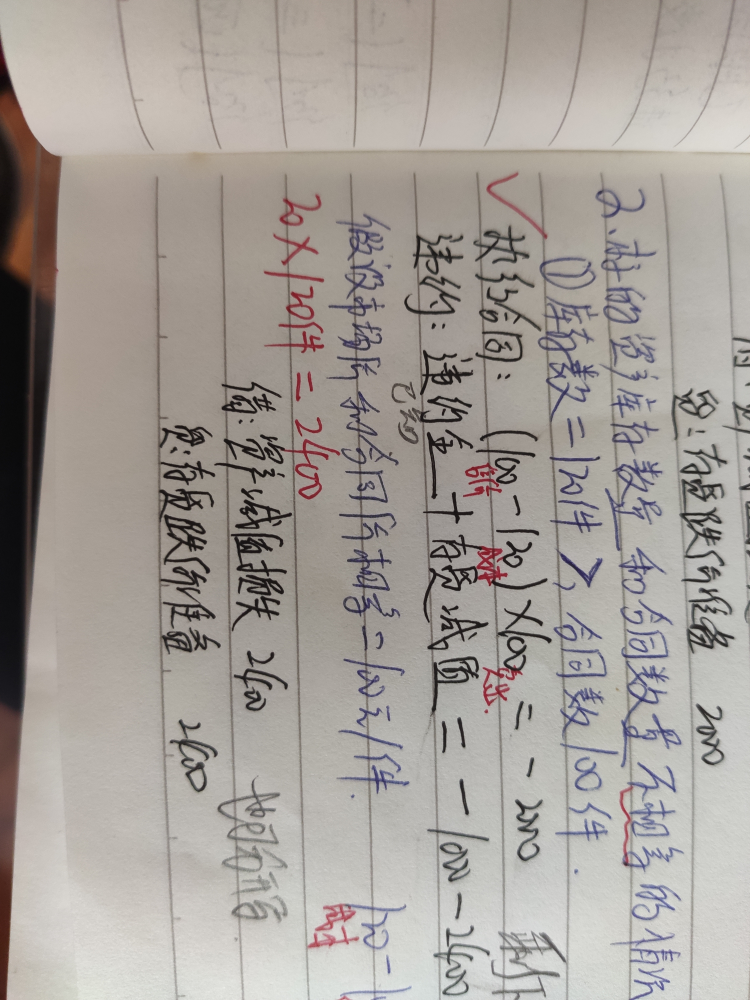 贷：存货跌价准备 2000
2.标的资产库存数量和合同数量不相等的情况
①库存数=120件>合同数100件.
执行合同：(100-120)×100=-2000
售价 成本
违约：违约金+存货减值=-1000-2400
已知
假设市场价和合同价相等=100元/件.
20×120件=2400
成本
借：资产减值损失 2400 也可分开写
贷：存货跌价准备 2400